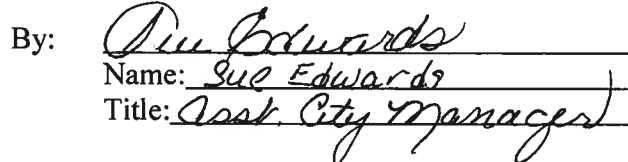 By: Sue Edwards
Name: Sue Edwards
Title: Asst. City Manager